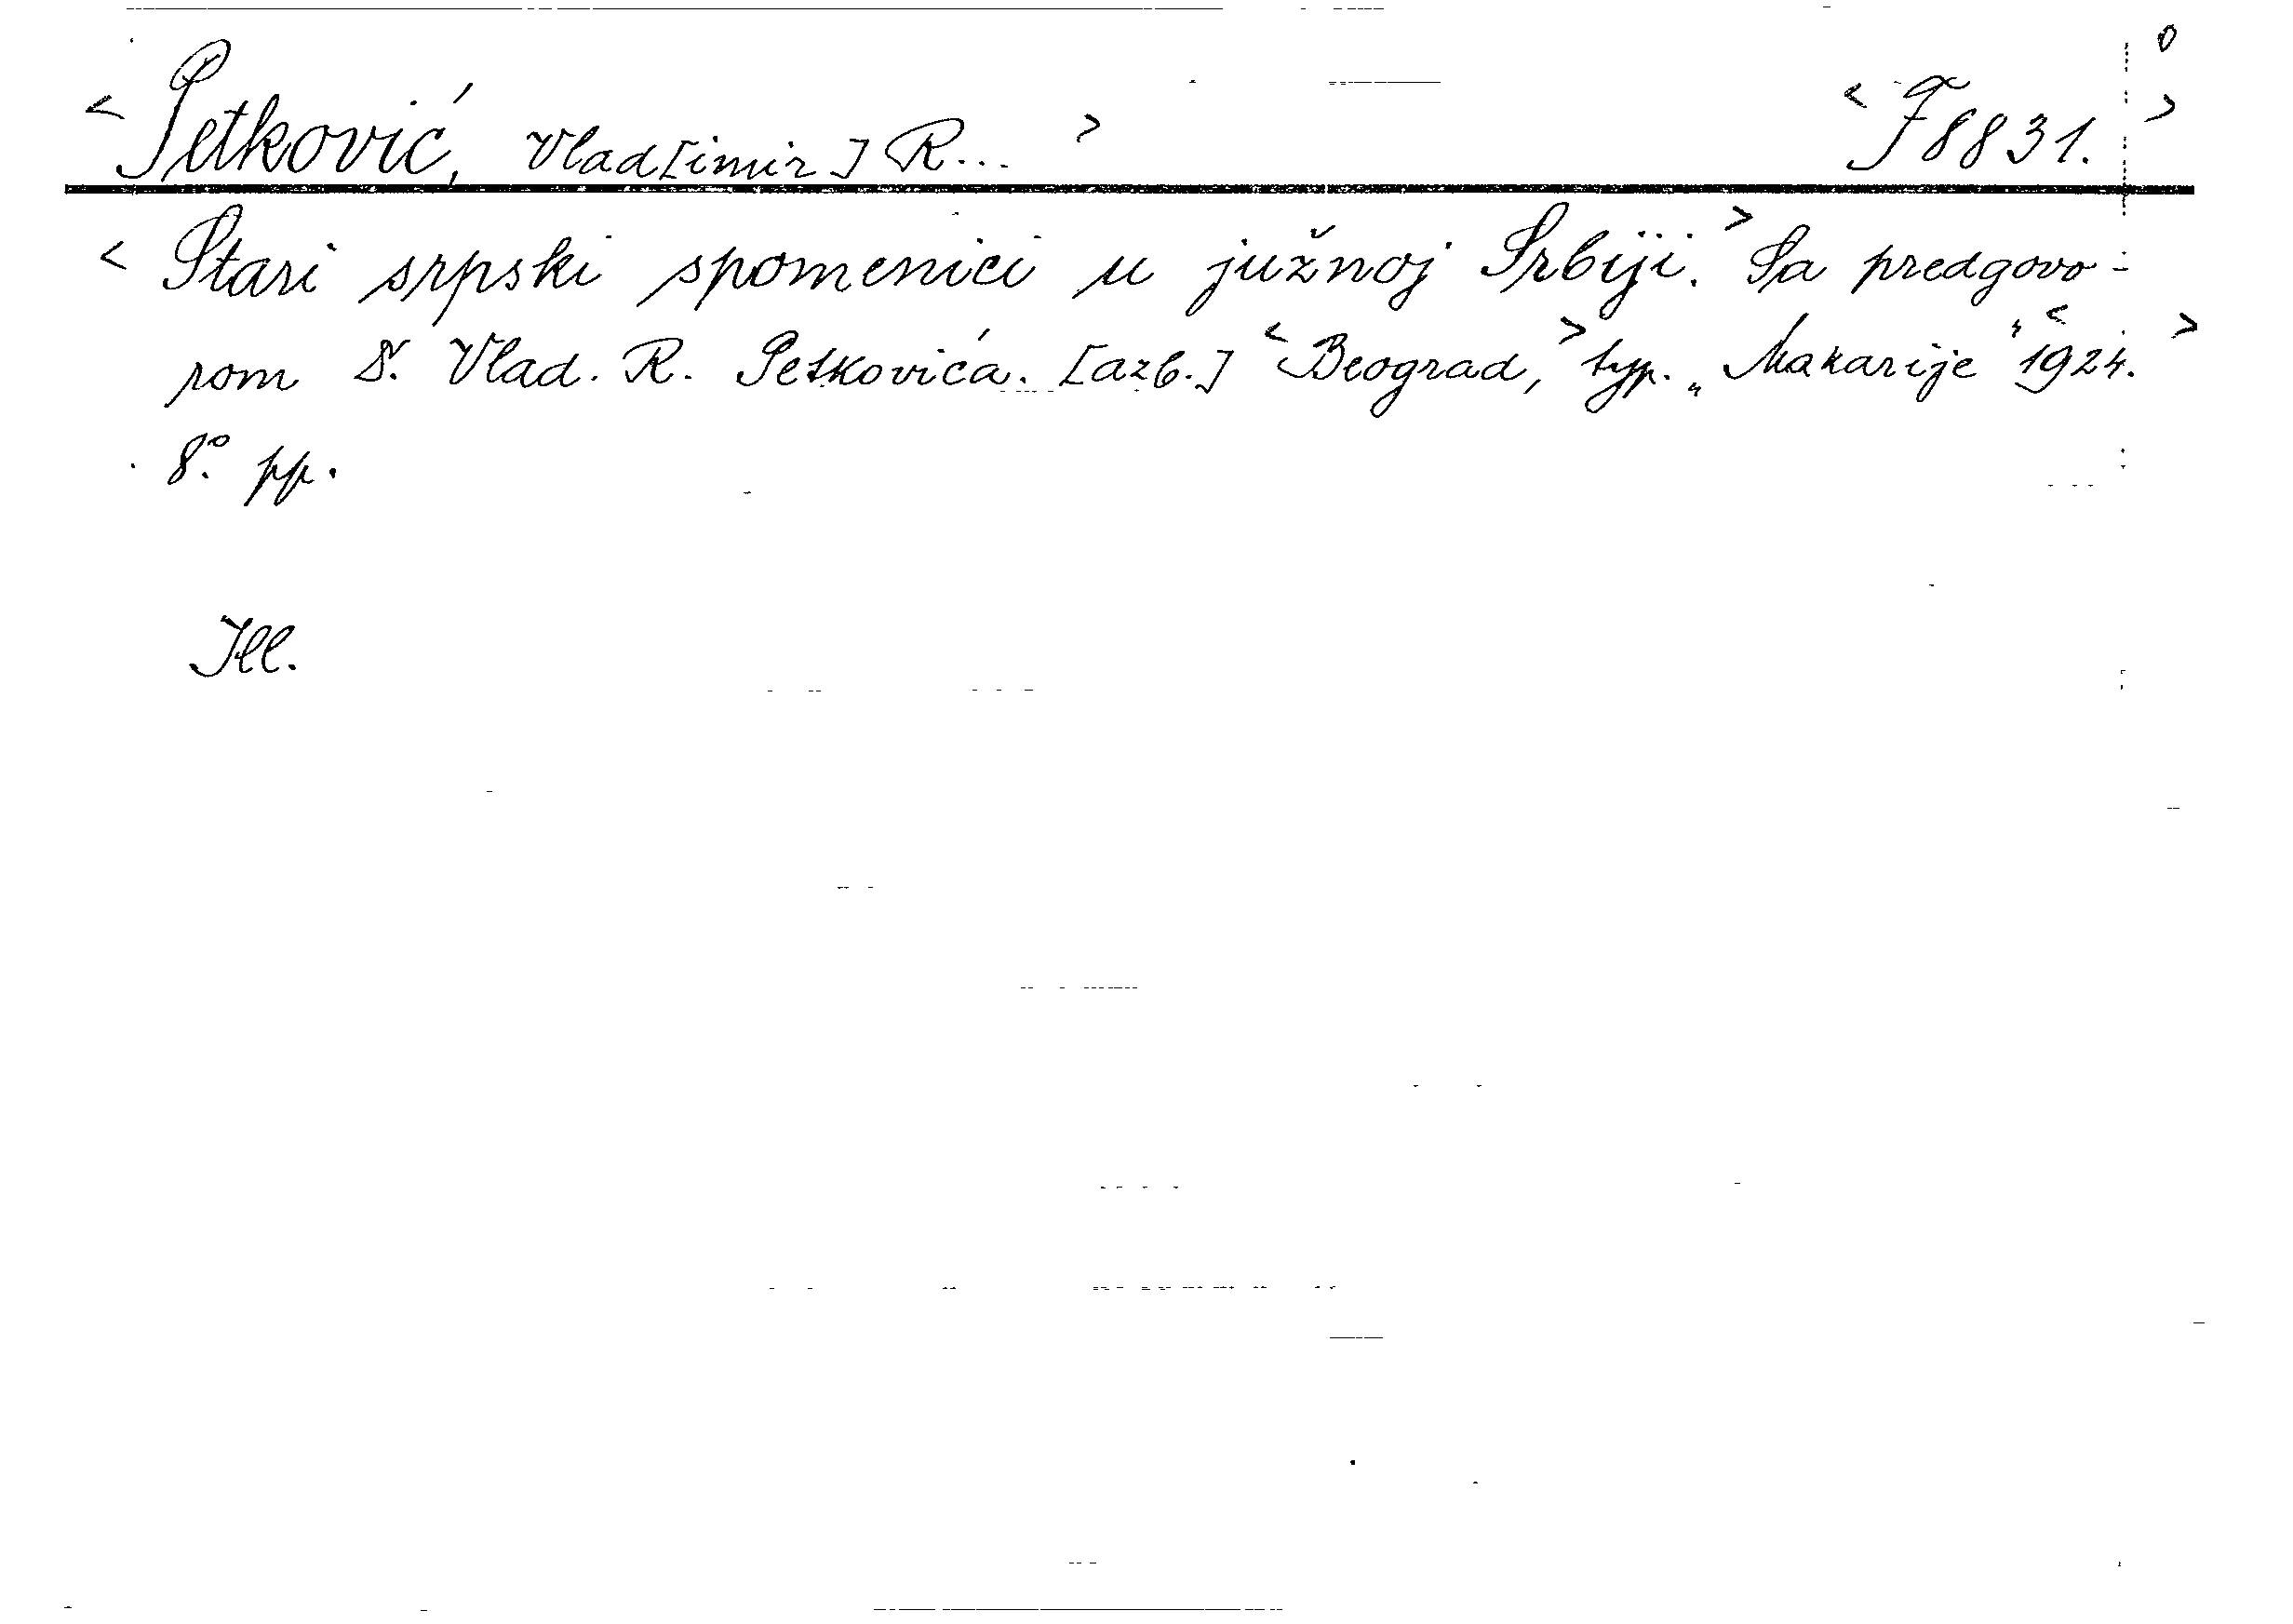 < Petković, Vlad[imir] R... > < F 8831. >
< Stari srpski spomenici u južnoj Srbiji. > Sa predgovo-
rom Dr. Vlad. R. Petkovića. [azb.] < Beograd, > typ. „Makarije" < 1924. >
8° pp.
Ill.